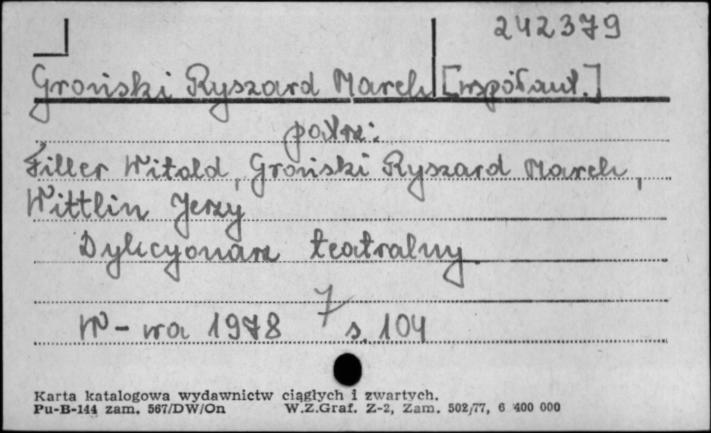 242379
Groński Ryszard Marek [współaut.]
patrz:
Filler Witold, Groński Ryszard Marek,
Wittlin Jerzy
Dykcyonarz teatralny.
7
W-wa 1978 s. 104
Karta katalogowa wydawnictw ciągłych i zwartych.
Pu-B-144 zam. 567/DW/On W.Z.Graf. Z-2, Zam. 502/77, 6 400 000